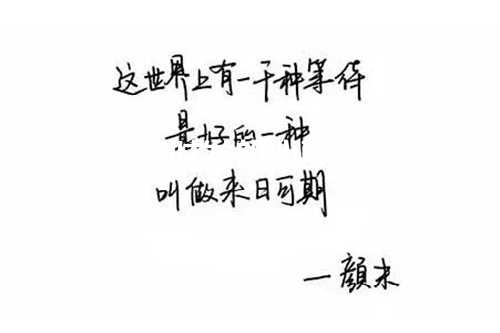 这世界上有一千种等待
最好的一种
叫做来日可期
—颜末